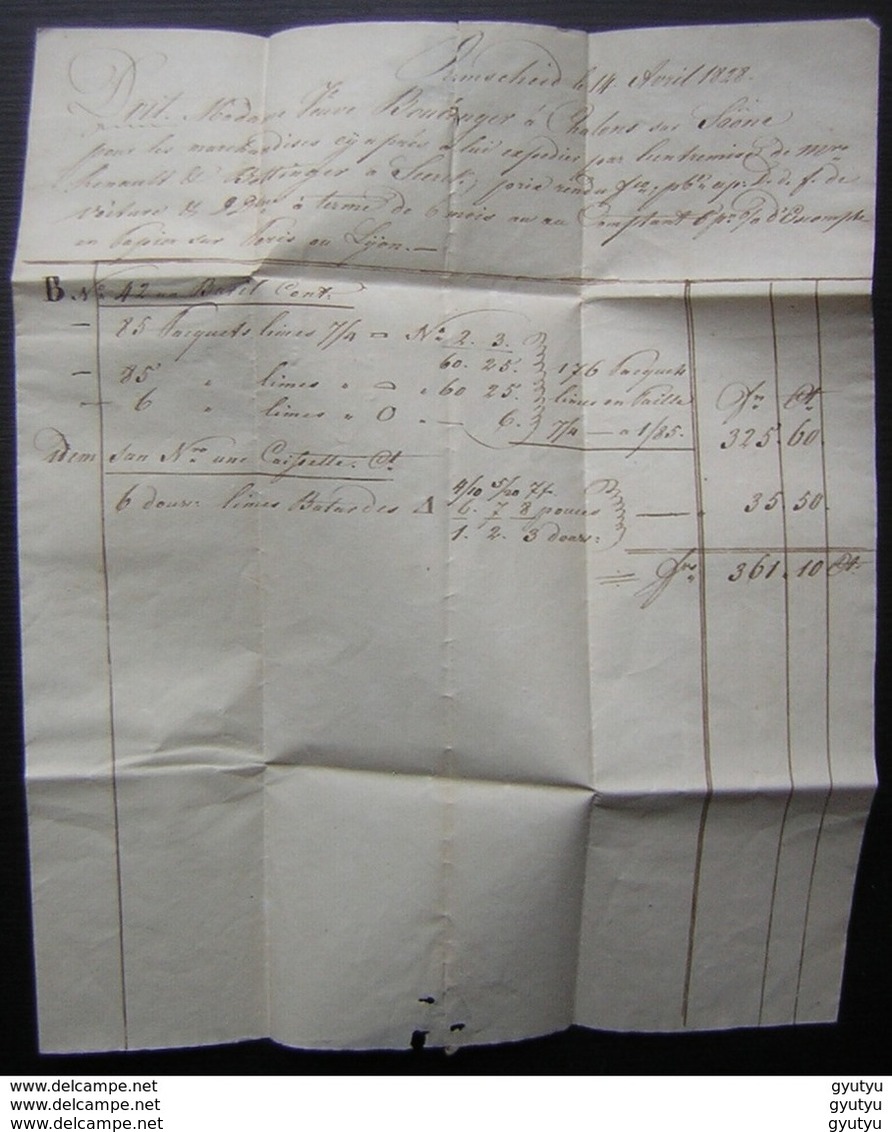 Remscheid le 14 Avril 1828.
Doit Madame Veuve Boulenger à Chalons sur Saône
pour les marchandises cÿ après à lui expedier par l'entremise de Mrs
& Bettinger à Sierck, prix rendu de
voiture & à terme de 6 mois ou au Comptant 6 pr % d'Escompte
en Papier sur Paris ou Lÿon.
B No 42 un Baril Cont.
— 85 Pacquets limes 7/4 □ No 2. 3.
60. 25. 176 Pacquets
— 85 " limes " " 60 25. limes en Paille
— 6 " limes " O " — 6. 7/4 — a 1/85. Frs Ct
325. 60.
Idem san Nro une Caissette. Ct.
4/10 5/20 7/.
6 douz: limes Batardes Δ 6. 7 8 pouces — " 35. 50.
1. 2. 3 douz:
= Frs 361. 10 Ct.
delcampe.net
delcampe.net
delcampe.net
gyutyu
gyutyu
gyutyu